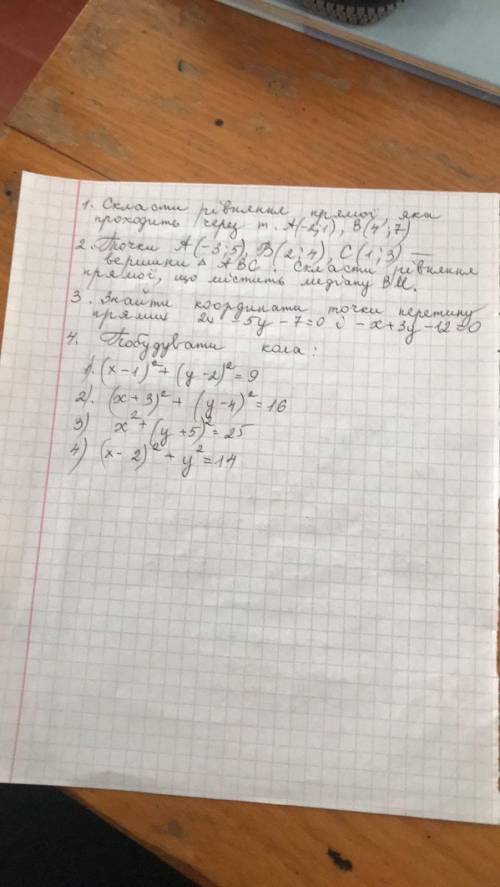 1. Скласти рівняння прямої, яка
проходить через т. A(-2;1), B(4;7)
2. Точки A(-3;5), B(2;4), C(1;3) —
вершини △ ABC. Скласти рівняння
прямої, що містить медіану BM.
3. Знайти координати точки перетину
прямих 2x - 5y - 7 = 0 і - x + 3y - 12 = 0
4. Побудувати кола:
1). (x - 1)² + (y - 2)² = 9
2). (x + 3)² + (y - 4)² = 16
3) x² + (y + 5)² = 25
4) (x - 2)² + y² = 14